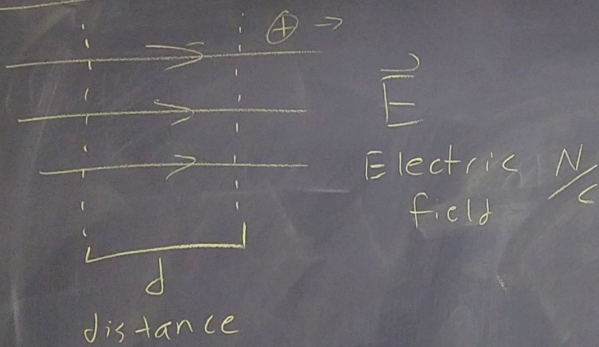 ⊕ →
E⃗
Electric N/C
field
d
distance